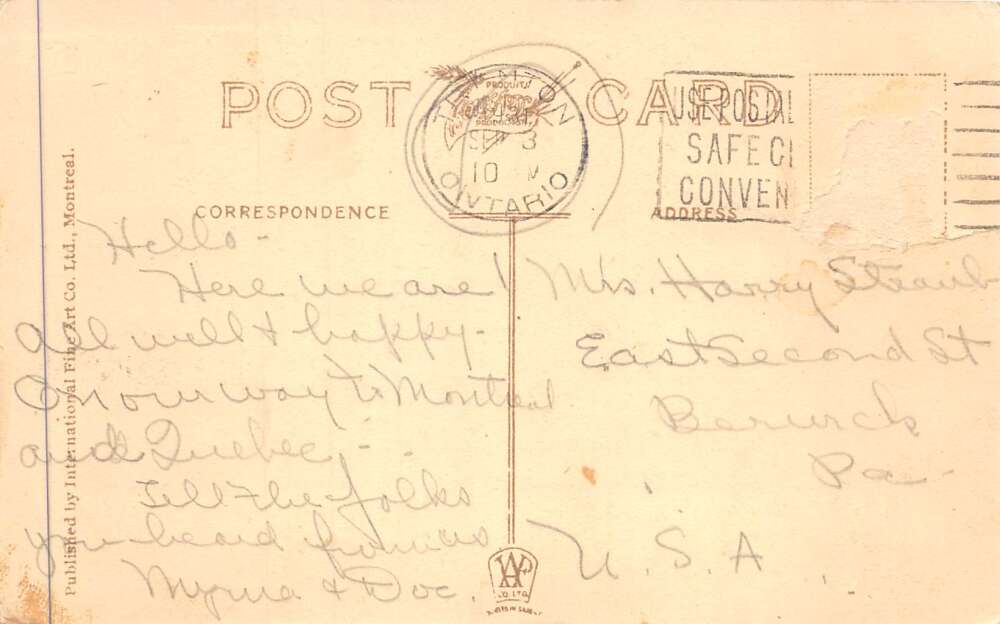 POST CARD
PRODUITS
PRODUCTION
SEP 3
10 M
ONTARIO
USE POSTAL
SAFE
CONVEN
CORRESPONDENCE
ADDRESS
Published by International Fine Art Co. Ltd., Montreal.
Hello -
Here we are!
All well & happy -
On our way to Montreal
and Quebec, -
Tell the folks
you heard from us
Myrna & Doc.
Mrs. Harry Straub
East Second St
Berwick
Pa -
U. S. A
CO. LTD.